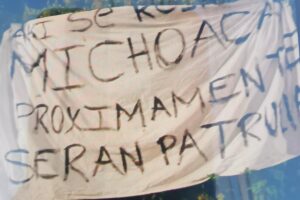 SE
MICHOACA
PROXIMAMENTE
SERAN PATRU